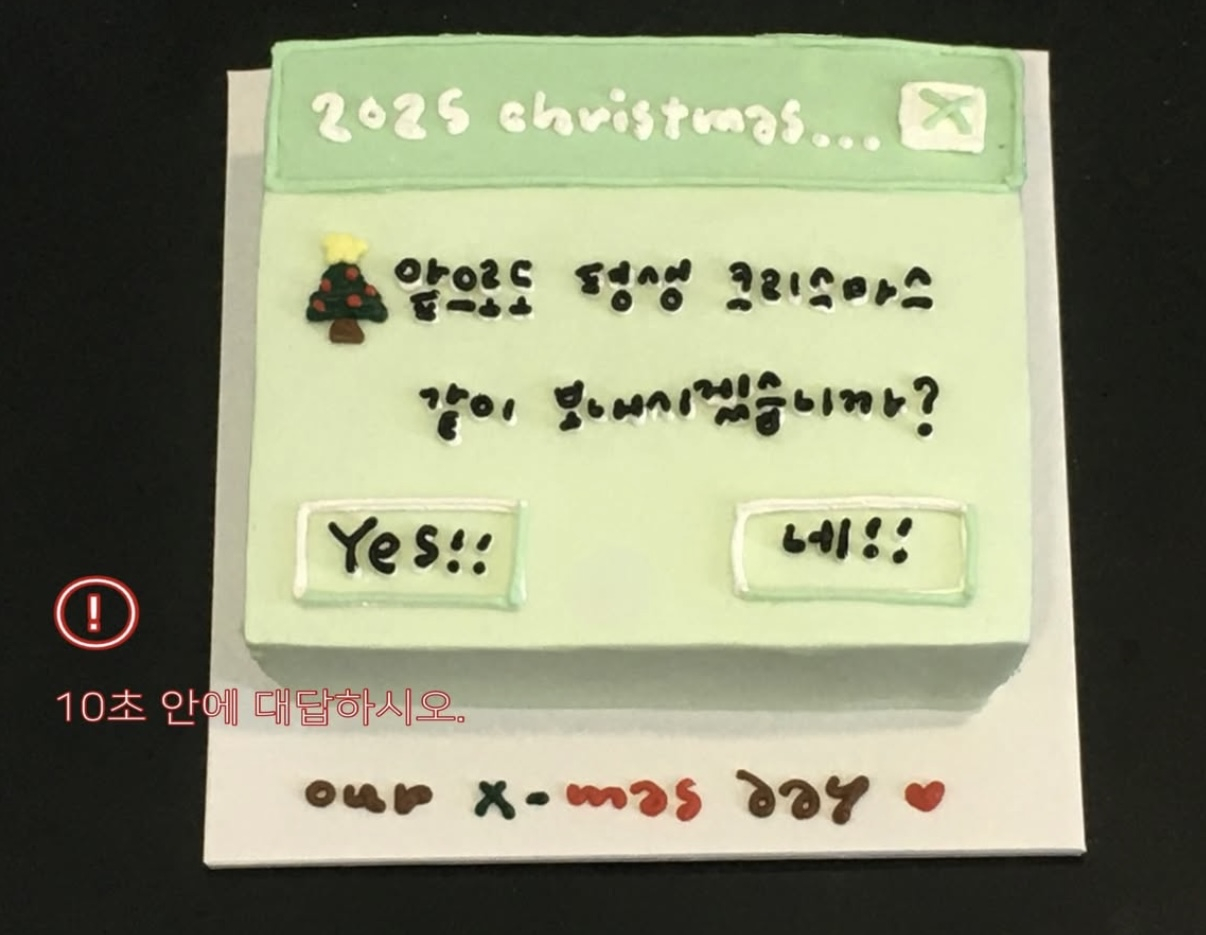 2025 christmas...
X
앞으로도 평생 크리스마스
같이 보내시겠습니까?
Yes!!
네!!
!
10초 안에 대답하시오.
our x-mas day ♥